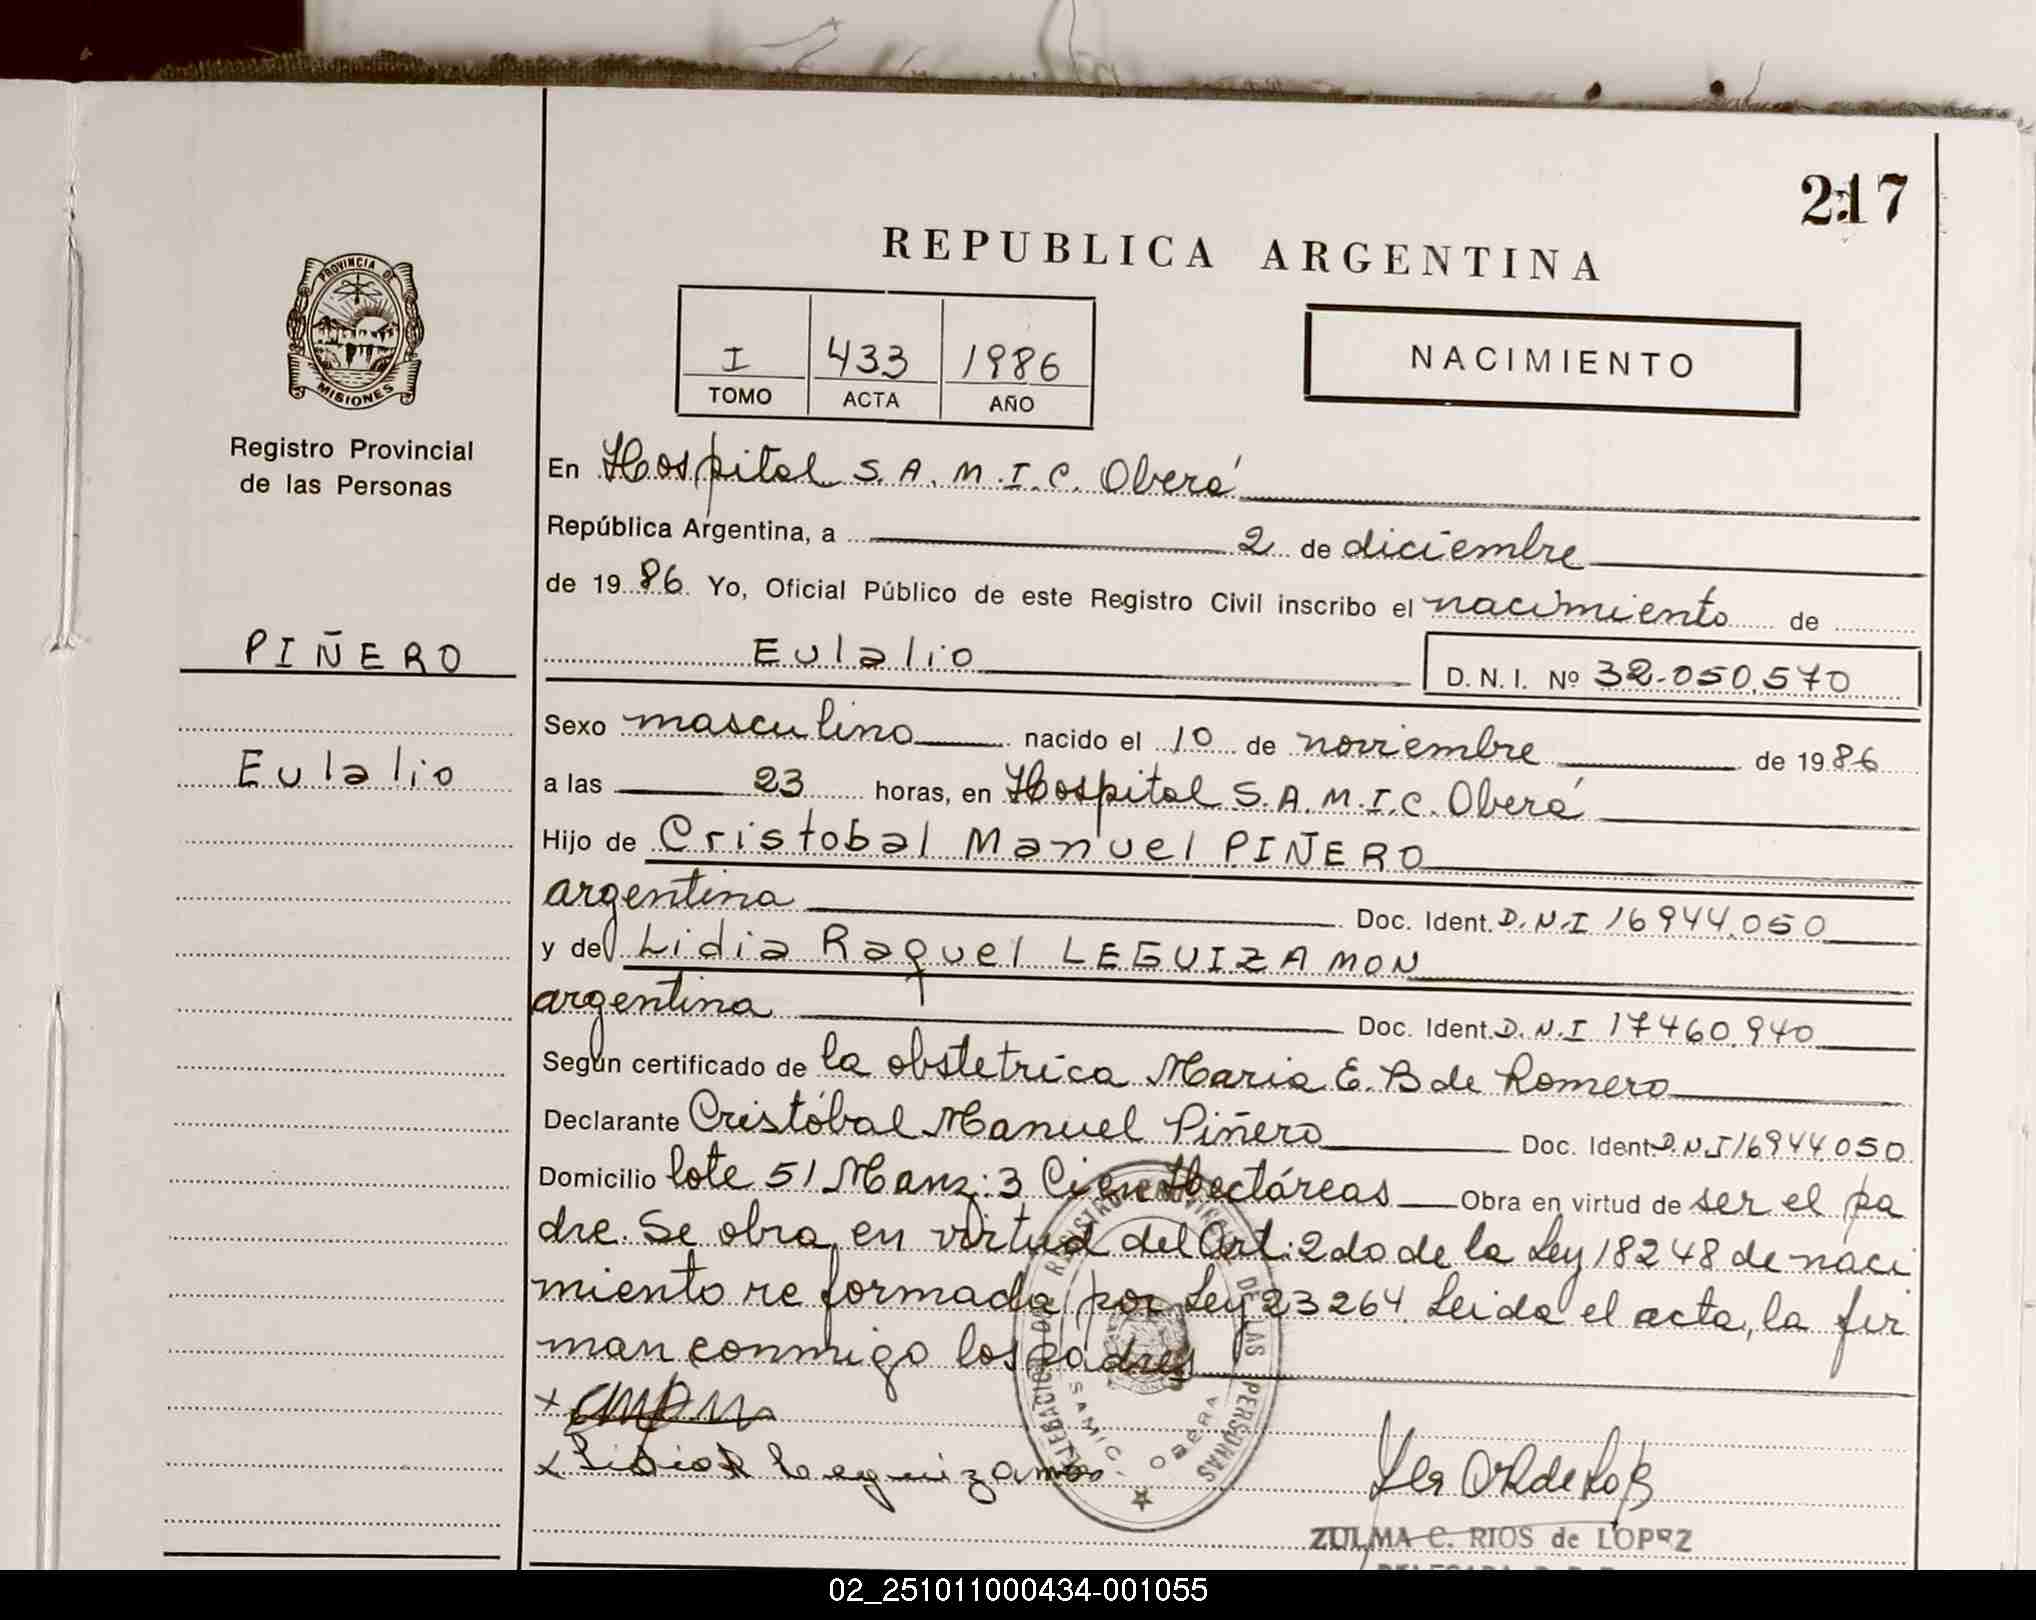 217
REPUBLICA ARGENTINA
PROVINCIA DE
MISIONES
I 433 1986
TOMO ACTA AÑO
NACIMIENTO
Registro Provincial
de las Personas
En Hospital S.A.M.I.C. Oberá
República Argentina, a 2 de diciembre
de 1986 Yo, Oficial Público de este Registro Civil inscribo el nacimiento de
PIÑERO
Eulalio D.N.I. Nº 32.050.570
Sexo masculino nacido el 10 de noviembre de 1986
Eulalio
a las 23 horas, en Hospital S.A.M.I.C. Oberá
Hijo de Cristobal Manuel PIÑERO
argentina Doc. Ident. D.N.I 16944.050
y de Lidia Raquel LEGUIZAMON
argentina Doc. Ident. D.N.I 17460.940
Según certificado de la obstetrica Maria E. B de Romero
Declarante Cristóbal Manuel Piñero Doc. Ident. D.N.I 16944.050
Domicilio lote 51 Manz: 3 Cien Hectáreas Obra en virtud de ser el pa
dre. Se obra en virtud del Art: 2do de la Ley 18248 de naci
miento reformada por Ley 23264. Leida el acta, la fir
man conmigo los padres
x
x Lidia R Leguizamon
SAMIC. OBERA
DE LAS PERSONAS
ZULMA C. RIOS de LOPEZ
02_251011000434-001055